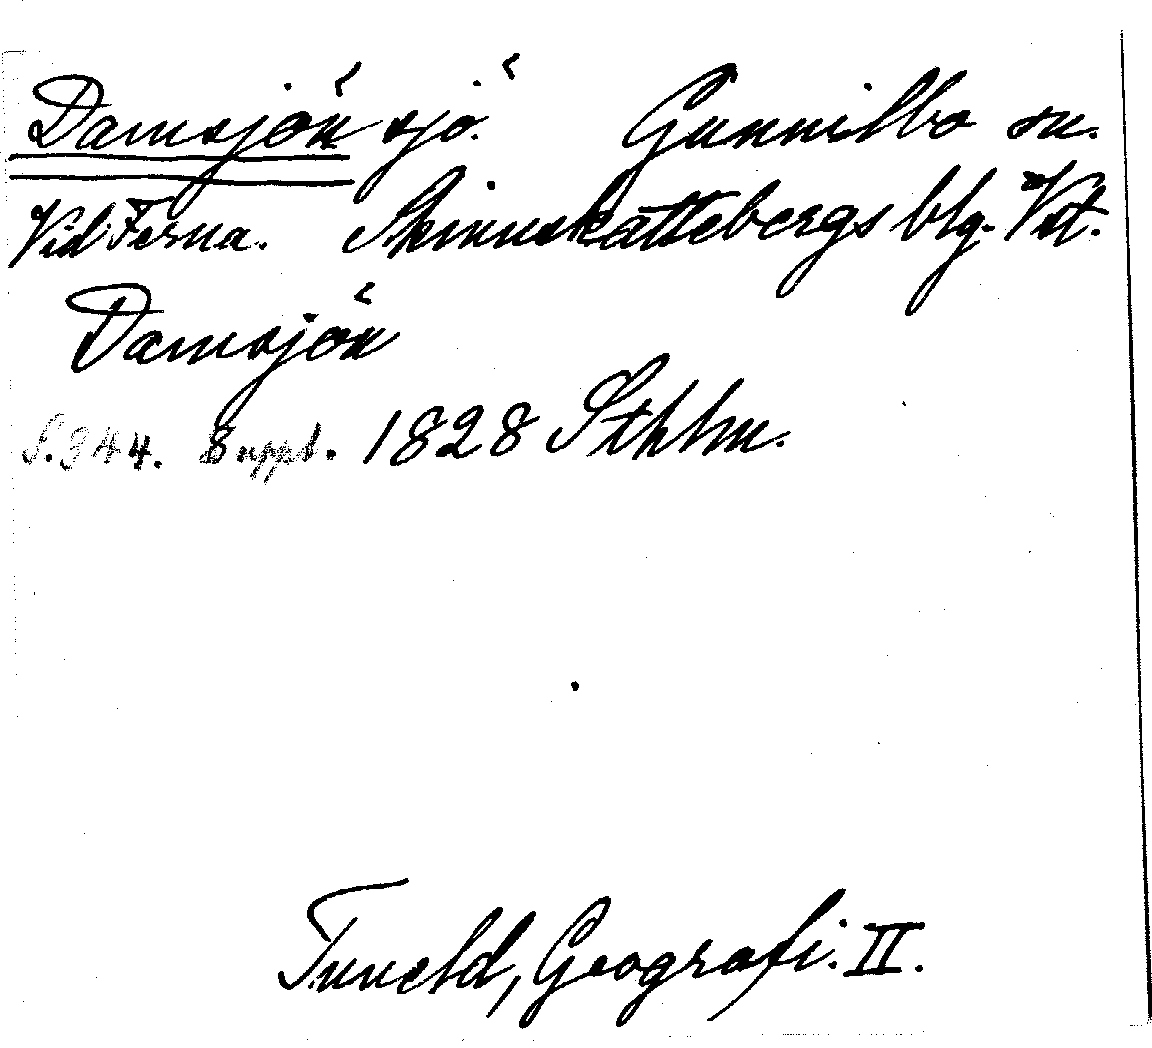 Damsjön sjö. Gunnilbo sn.
Vid Ferna. Skinnskattebergs blg. Vstm.
Damsjön
S. 344. Suppl. 1828 Sthlm.
Tuneld, Geografi. II.